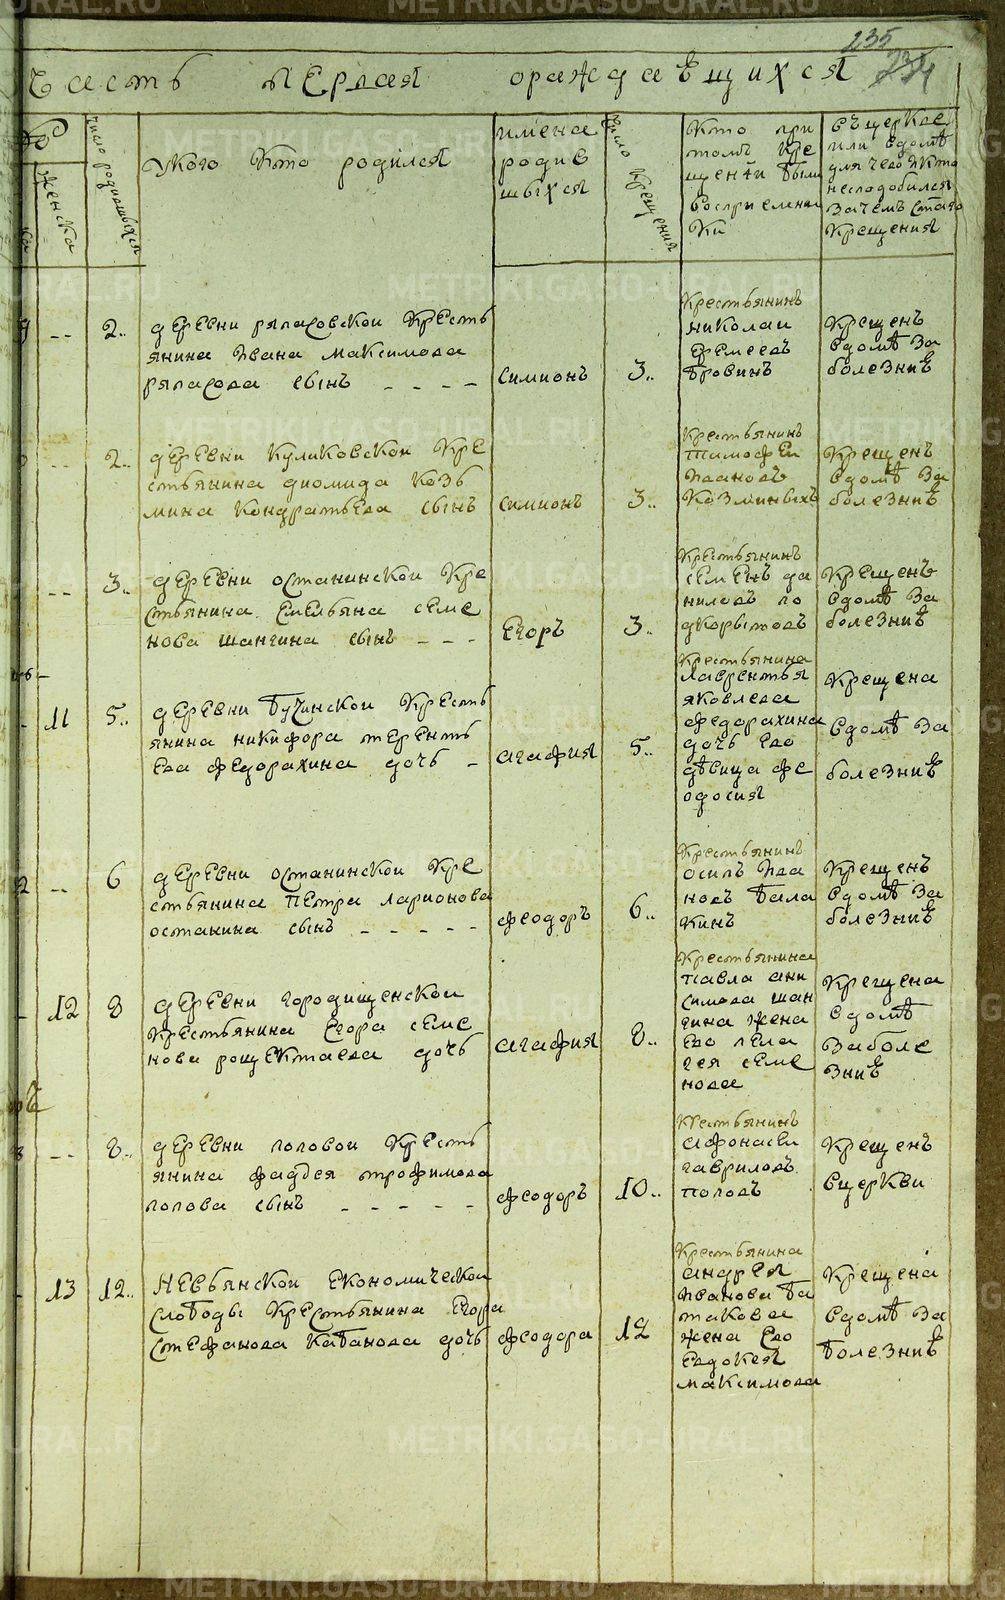 235
часть первая ораждаевщихся
женска
число родившыхся
укого кто родился
имена
родив
шыхся
число крещения
кто при
томъ кре
щенїи были
восприемни
ки
въцеркве
или вдомѣ
для чего икто
несподобился
зачемъ стаго
крещения
-- 2.. деревни ряпасовской кресть
янина ивана максимова
ряпасова сынъ - - - -
симионъ
3..
крестьянинъ
николаи
еремеевъ
бровинъ
крещенъ
вдомѣ за
болезниѣ
-- 2.. деревни куликовской кре
стьянина диомида козь
мина кондратьева сынъ
симионъ
3..
крестьянинъ
тимофеи
ивановъ
козминыхъ
крещенъ
вдомѣ за
болезниѣ
-- 3.. деревни останинской кре
стьянина емельяна семе
нова шангина сынъ - - -
егоръ
3..
крестьянинъ
семенъ да
ниловъ по
дкорытовъ
крещенъ
вдомѣ за
болезниѣ
11 5.. деревни бучинской кресть
янина никифора теренть
ева федорахина дочь -
агафия
5..
крестьянина
лаврентья
яковлева
федорахина
дочь ево
дѣвица фе
одосия
крещена
вдомѣ за
болезниѣ
-- 6 деревни останинской кре
стьянина петра ларионова
останина сынъ - - - - -
феодоръ
6..
крестьянинъ
осипъ ива
новъ бала
кинъ
крещенъ
вдомѣ за
болезниѣ
12 8 деревни городищенской
крестьянина егора семе
нова рощектаева дочь
агафия
8..
крестьянина
павла ани
симова шан
гина жена
ево пела
гея семе
нова
крещена
вдомѣ
заболе
зниѣ
-- 8.. деревни половои кресть
янина фадѣя трофимова
попова сынъ - - - - -
феодоръ
10..
крестьянинъ
афонасеи
гавриловъ
поповъ
крещенъ
вцеркви
13 12.. невьянской економической
слободы крестьянина егора
стефанова кабанова дочь
феодора
12
крестьянина
андрея
иванова ба
такова
жена ево
евдокея
максимова
крещена
вдомѣ за
болезниѣ
METRIKI.GASO-URAL.RU